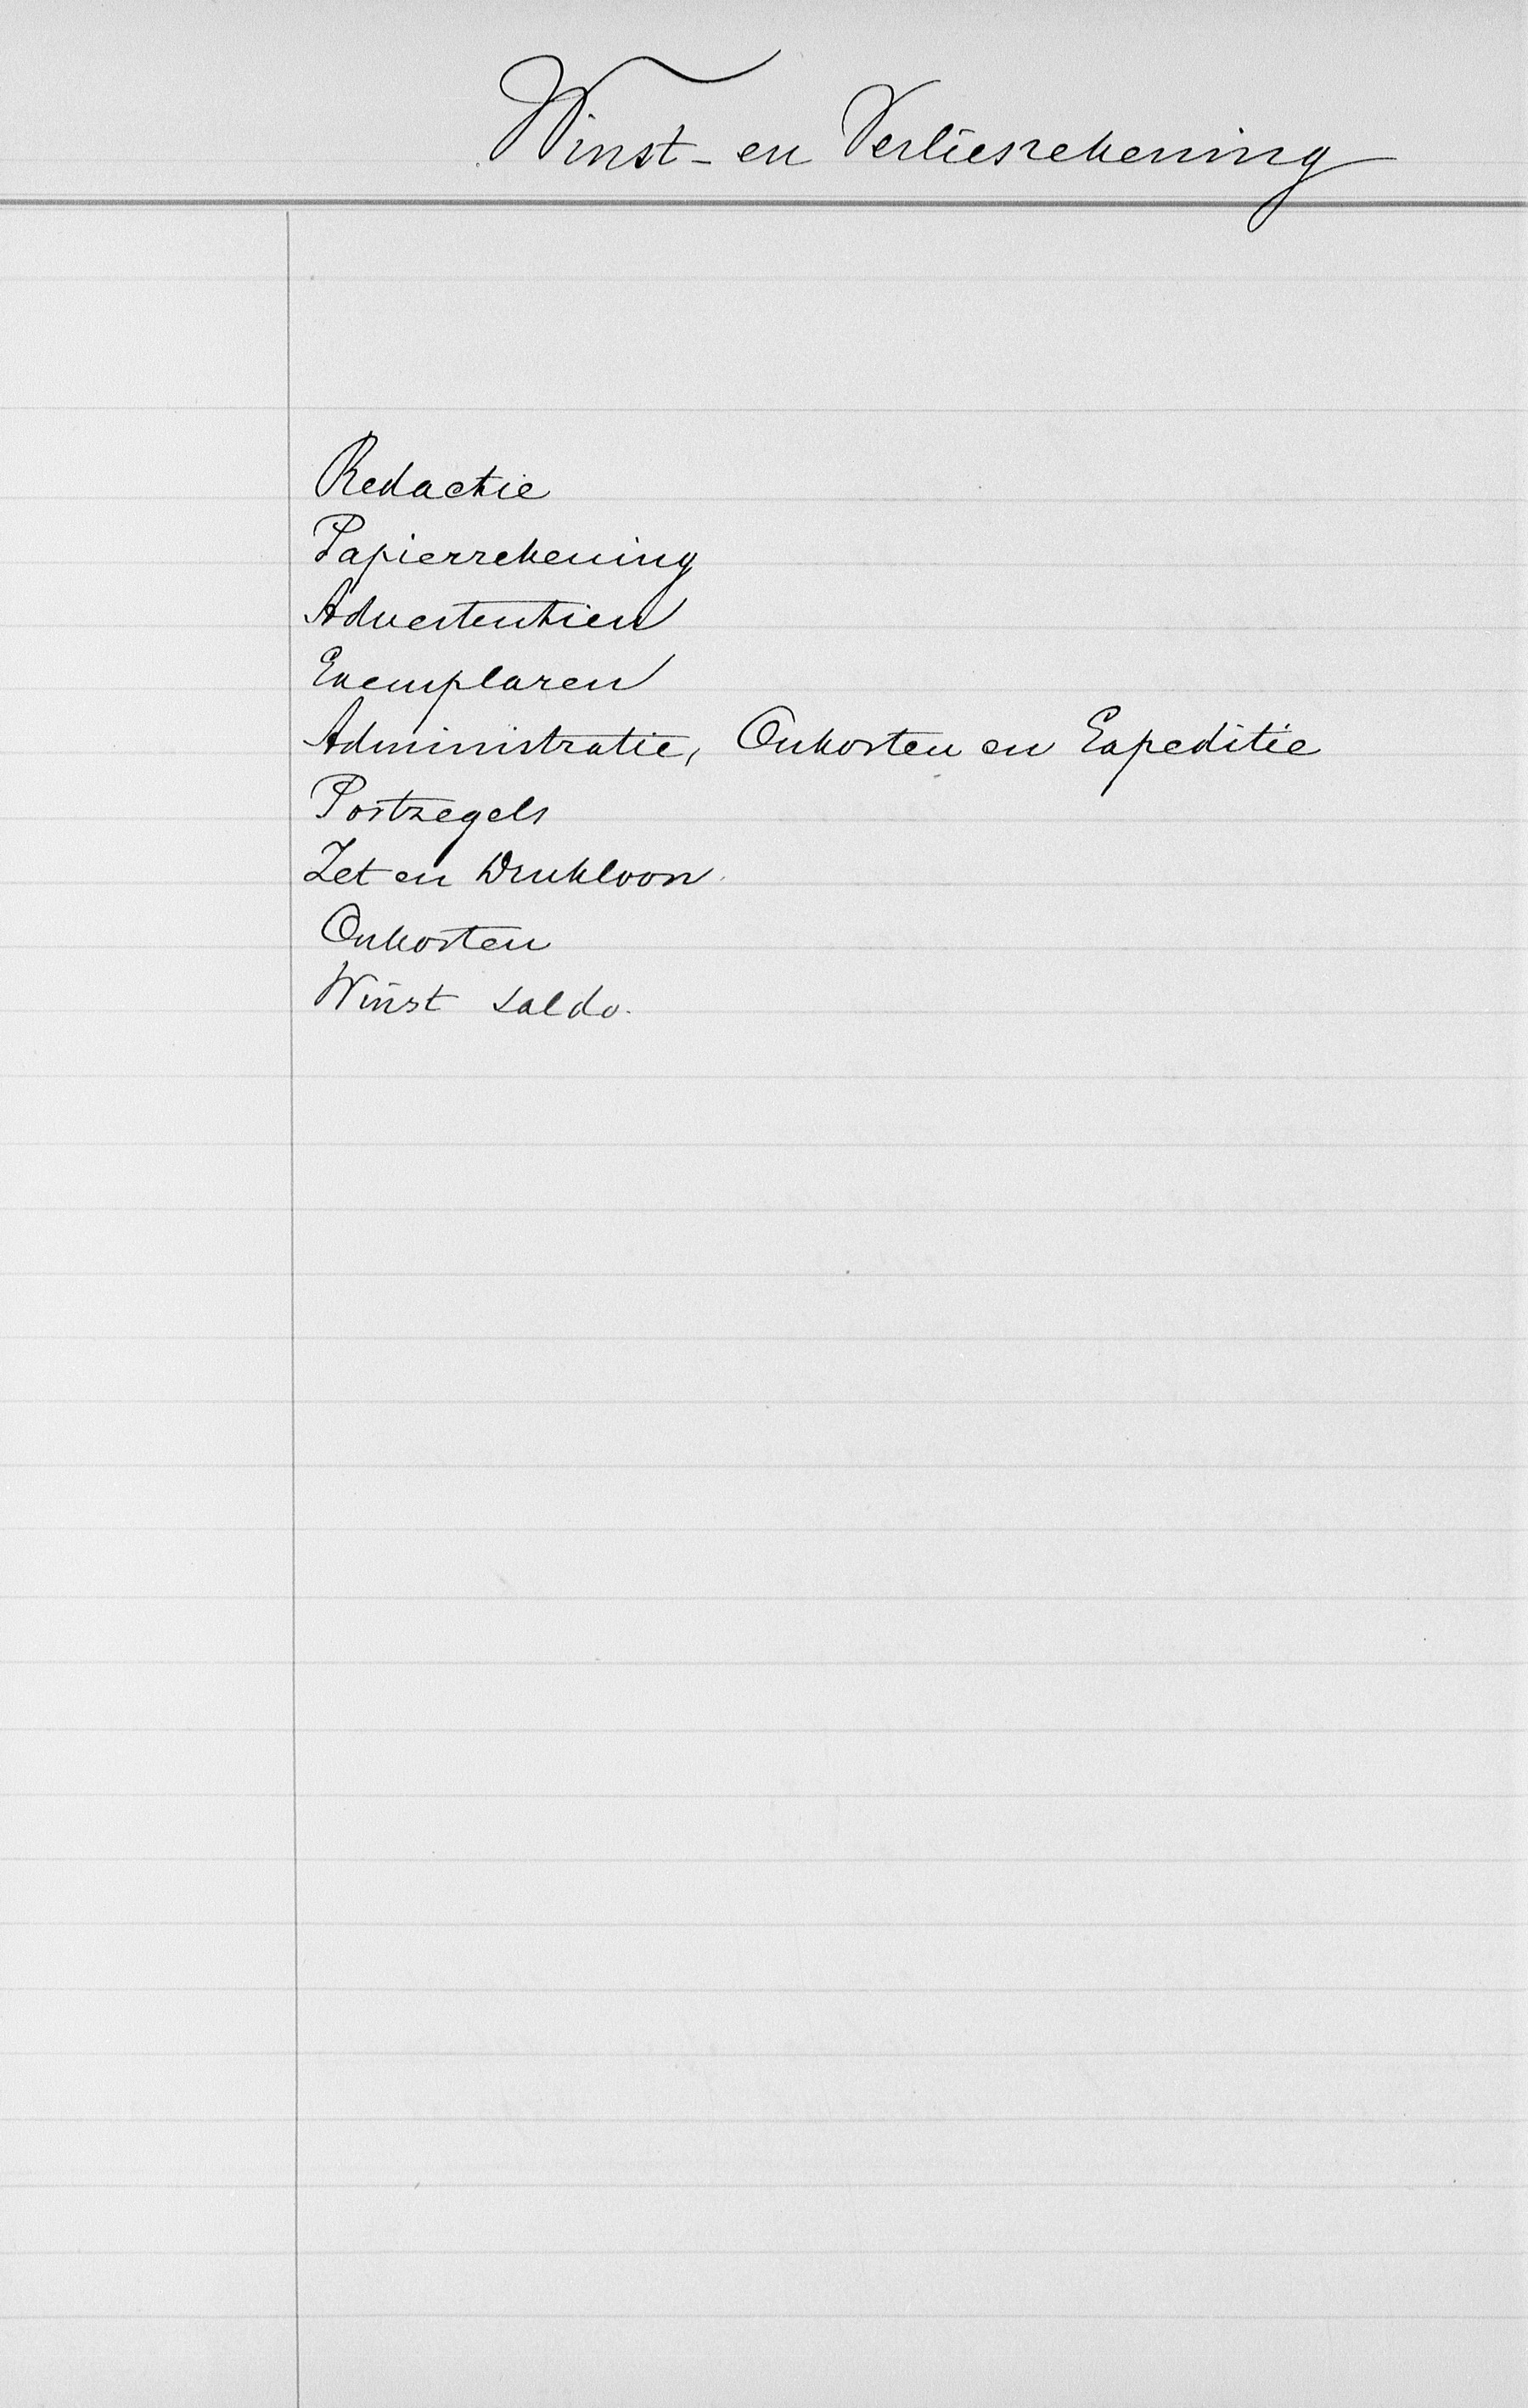 Winst- en Verliesrekening
Redactie
Papierrekening
Advertentien
Exemplaren
Administratie, Onkosten en Expeditie
Postzegels
Zet en Drukloon
Onkosten
Winst saldo.